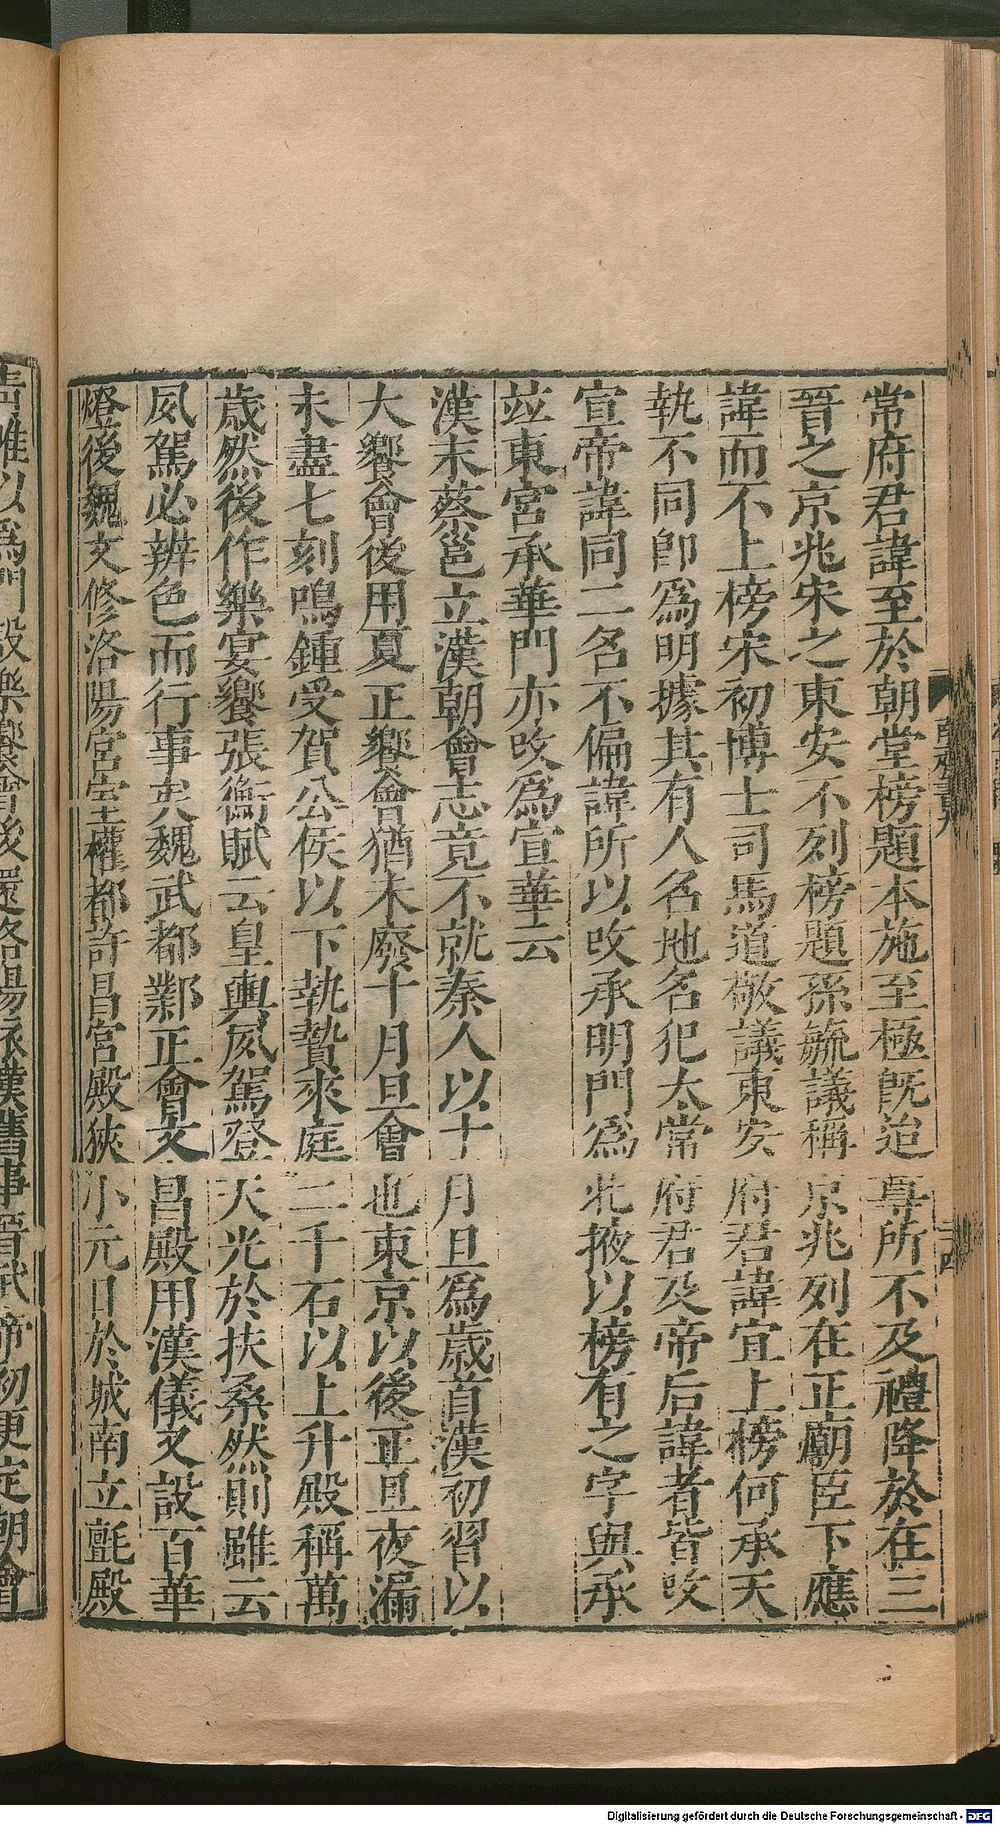 常府君諱至於朝堂榜題本施至極旣追尊所不及禮降於在三
晉之京兆宋之東安不列榜題孫毓議稱京兆列在正廟臣下應
諱而不上榜宋初博士司馬道敬議東安府君諱宜上榜何承天
執不同卽爲明據其有人名地名犯太常府君及帝后諱者皆攺
宣帝諱同二名不偏諱所以攺承明門爲北掖以榜有之字與承
竝東宮承華門亦攺爲宣華云
漢末蔡邕立漢朝會志竟不就秦人以十月旦爲歲首漢初習以
大饗會後用夏正饗會猶未廢十月旦會也東京以後正旦夜漏
未盡七刻鳴鍾受賀公侯以下執贄來庭二千石以上升殿稱萬
歲然後作樂宴饗張衡賦云皇輿夙駕登天光於扶桑然則雖云
夙駕必辨色而行事矣魏武都鄴正會文昌殿用漢儀又設百華
燈後魏文修洛陽宮室權都許昌宮殿狹小元日於城南立氊殿
青帷以爲門設樂饗會後還洛陽依漢舊事晉武帝初更定朝會
南齊書九
二十四
Digitalisierung gefördert durch die Deutsche Forschungsgemeinschaft - DFG